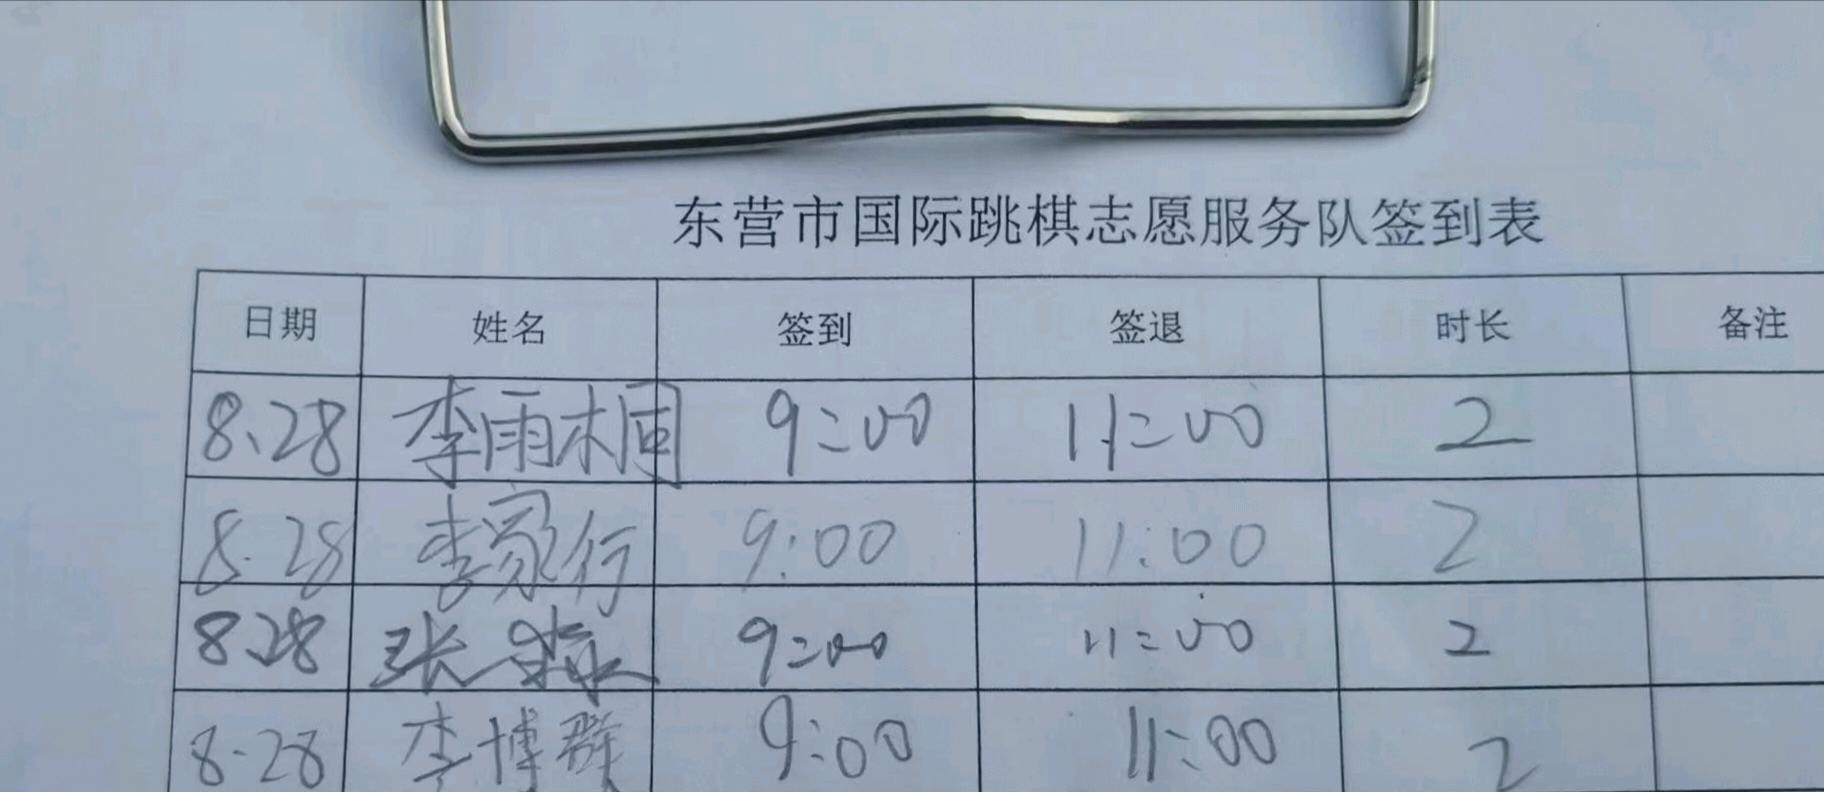 东营市国际跳棋志愿服务队签到表
日期 姓名 签到 签退 时长 备注
8.28 李雨桐 9:00 11:00 2
8.28 李家行 9:00 11:00 2
8.28 张 9:00 11:00 2
8.28 李博群 9:00 11:00 2